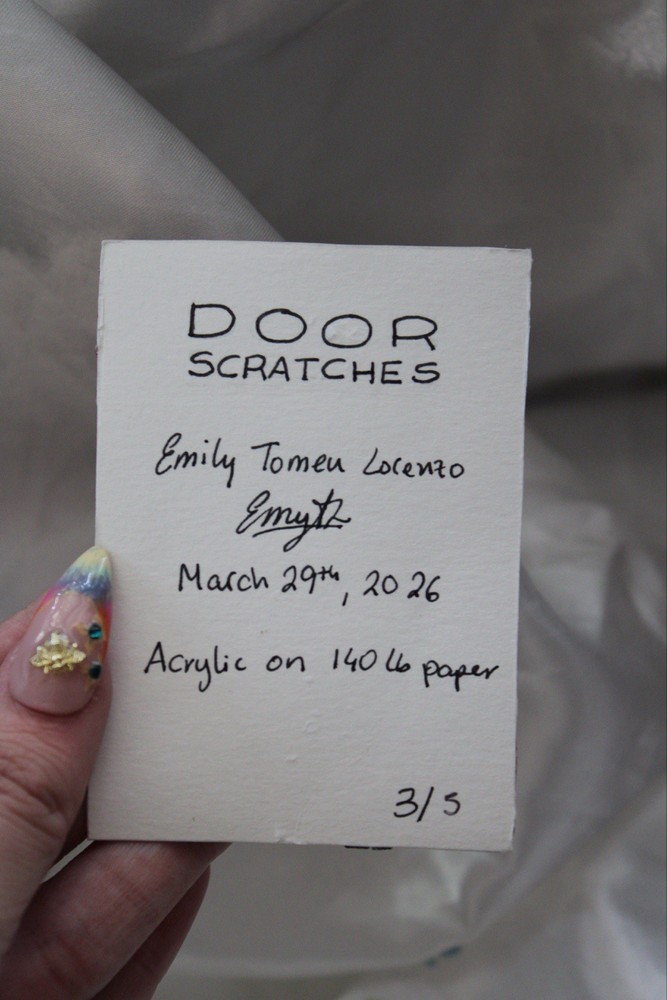 DOOR
SCRATCHES
Emily Tomeu Lorenzo
March 29th, 2026
Acrylic on 140 lb paper
3/5